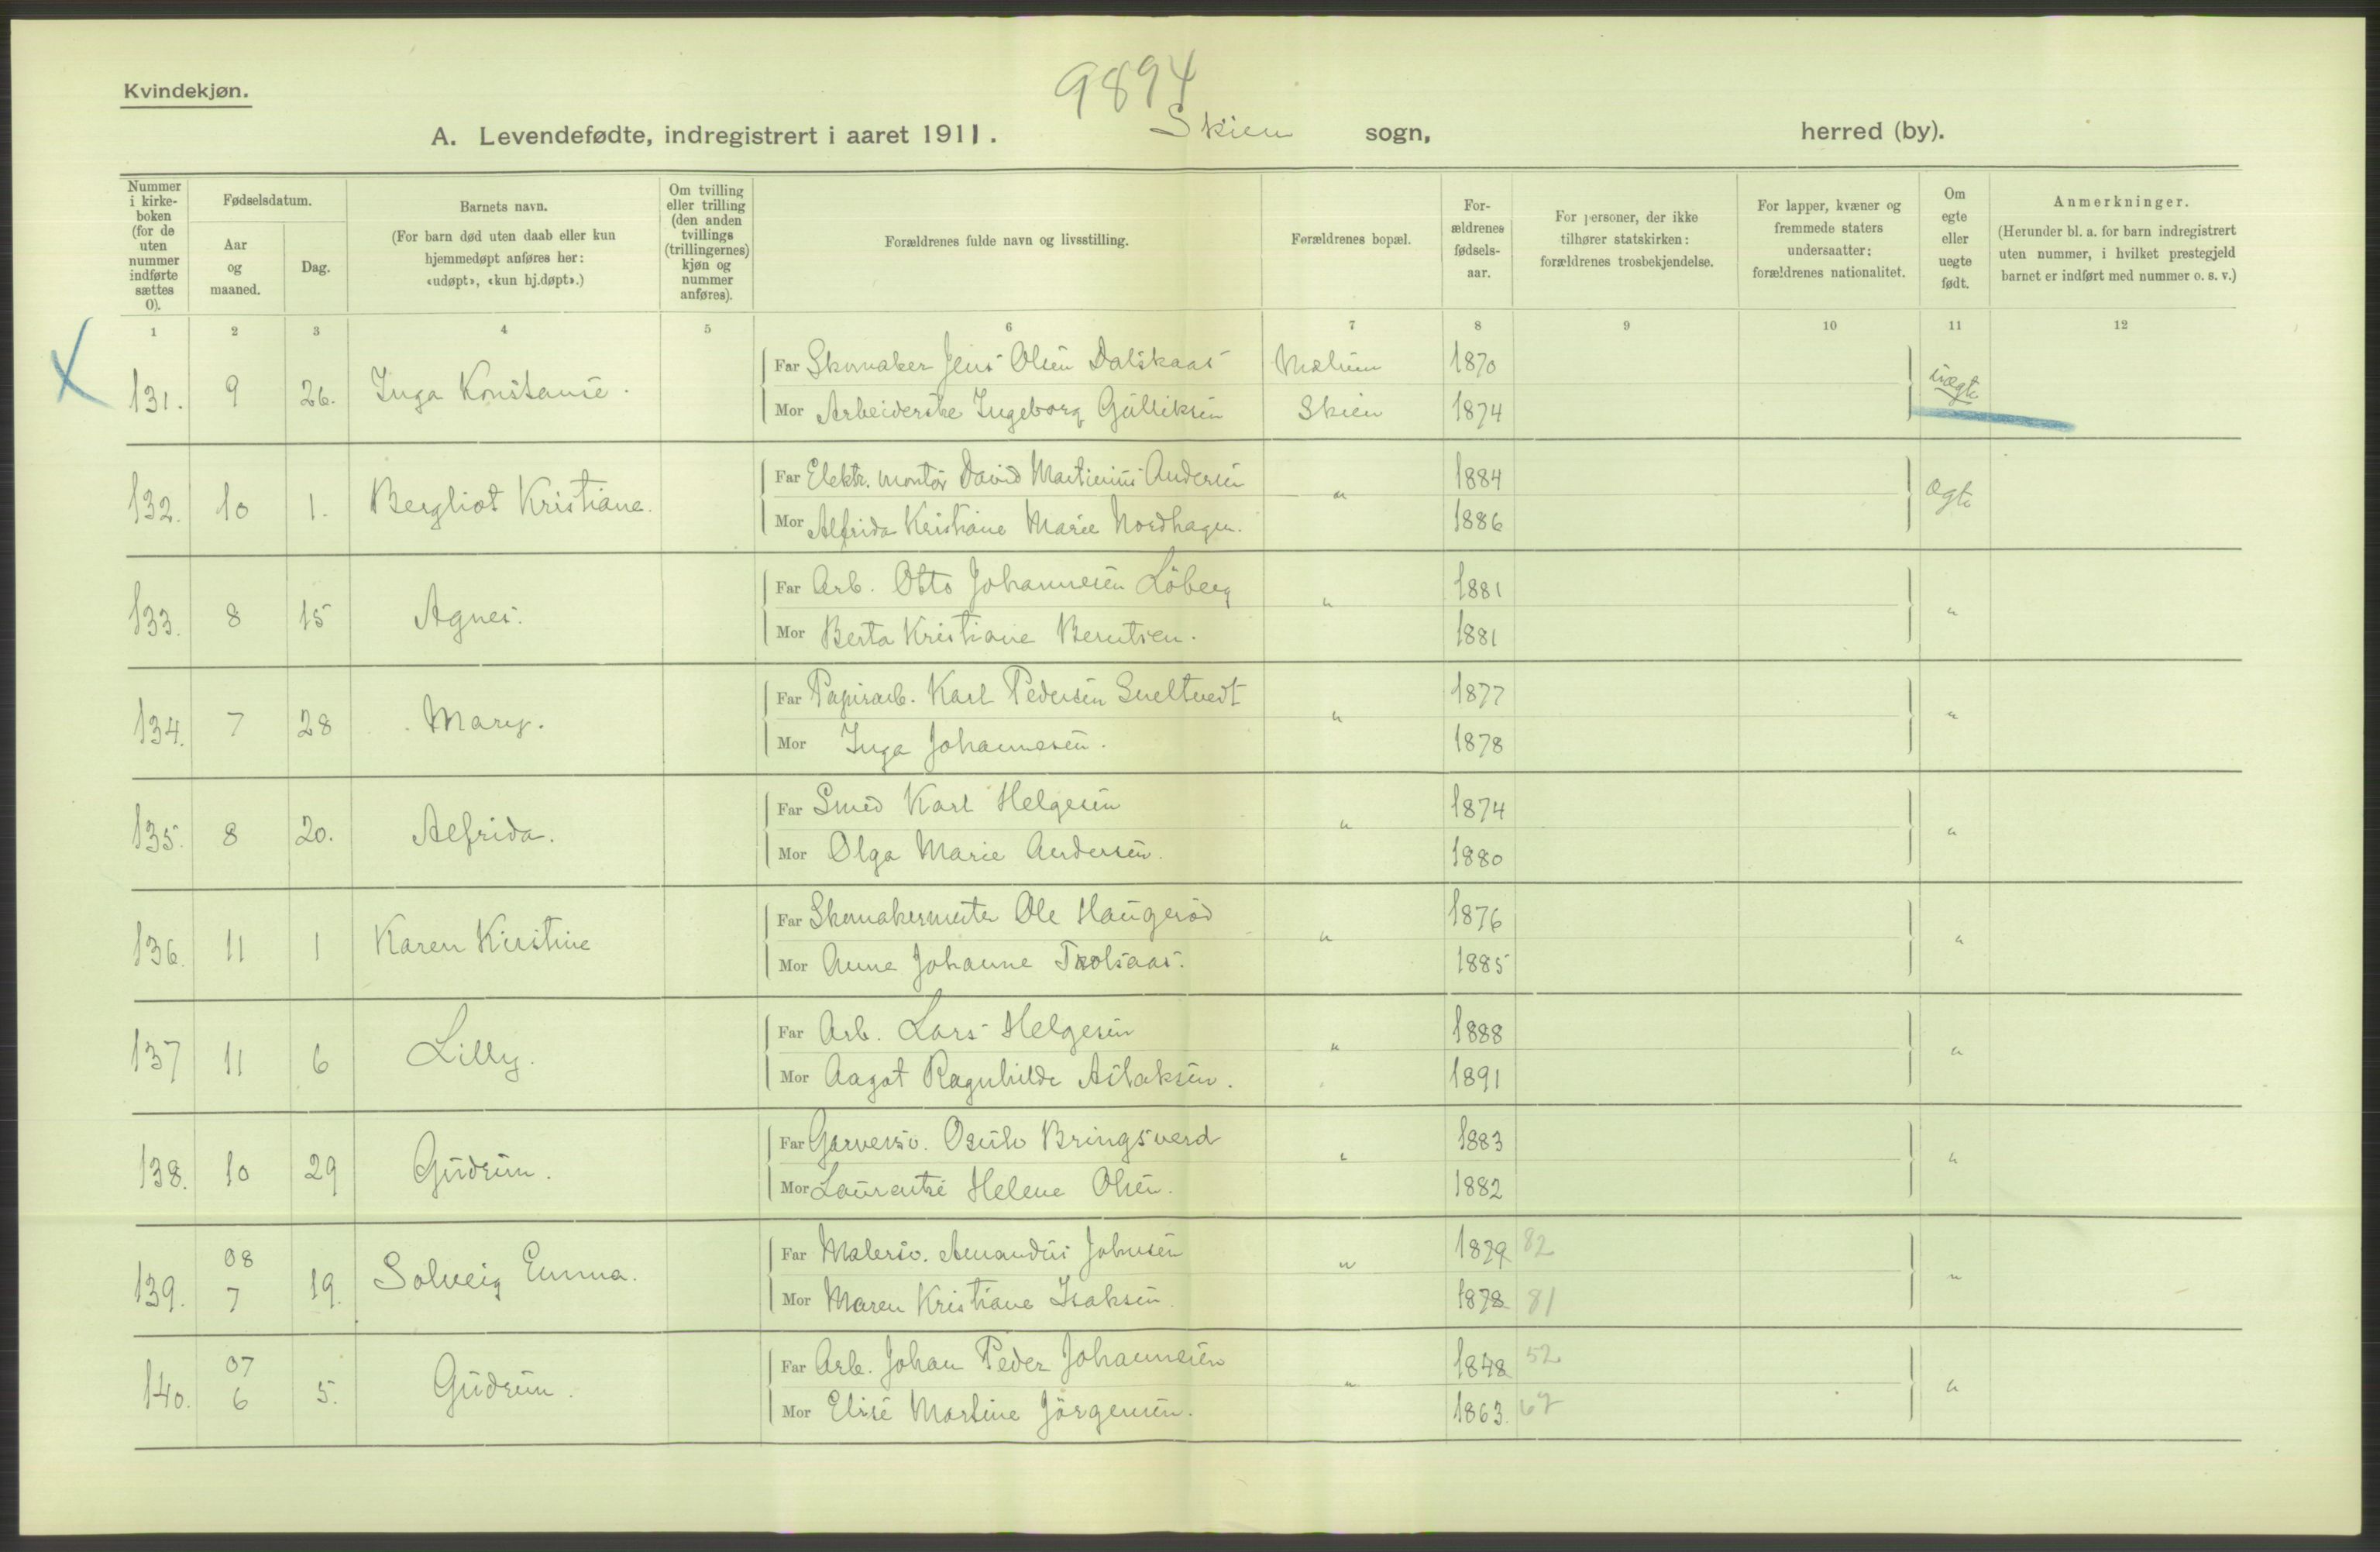 9894
Kvindekjøn.
A. Levendefødte, indregistrert i aaret 1911. Skien sogn, herred (by).
Nummer i kirke-boken (for de uten nummer indførte sættes 0).
Fødselsdatum.
Aar og maaned.
Dag.
Barnets navn.
(For barn død uten daab eller kun hjemmedøpt anføres her: «udøpt», «kun hj.døpt».)
Om tvilling eller trilling (den anden tvillings (trillingernes) kjøn og nummer anføres).
Forældrenes fulde navn og livsstilling.
Forældrenes bopæl.
For-ældrenes fødsels-aar.
For personer, der ikke tilhører statskirken: forældrenes trosbekjendelse.
For lapper, kvæner og fremmede staters undersaatter: forældrenes nationalitet.
Om egte eller uegte født.
Anmerkninger.
(Herunder bl. a. for barn indregistrert uten nummer, i hvilket prestegjeld barnet er indført med nummer o. s. v.)
1 2 3 4 5 6 7 8 9 10 11 12
X
Far Skomaker Jens Olsen Dalskaas Mælum 1870
131. 9 26. Inga Konstanse. uægte
Mor Arbeiderske Ingeborg Gulliksen Skien 1874
Far Elektr. montör David Martinius Andersen 1884
132. 10 1. Bergliot Kristiane. " ægte
Mor Alfrida Kristiane Marie Nordhagen. 1886
Far Arb. Otto Johannesen Löberg 1881
133. 8 15 Agnes. " "
Mor Berta Kristiane Berntsen. 1881
Far Papirarb. Karl Pedersen Sneltvedt 1877
134. 7 28 Mary. " "
Mor Inga Johannesen. 1878
Far Smed Karl Helgesen 1874
135. 8 20. Alfrida. " "
Mor Olga Marie Andersen. 1880
Far Skomakermester Ole Haugeröd 1876
136. 11 1 Karen Kirstine " "
Mor Anne Johanne Trolsaas. 1885
Far Arb. Lars Helgesen 1888
137 11 6 Lilly. " "
Mor Aagot Ragnhilde Aslaksen. 1891
Far Garversv. Osulv Bringsverd 1883
138. 10 29 Gudrun. " "
Mor Laurentse Helene Olsen. 1882
Far Malersv. Amandus Johnsen 1879 82
139. 08 7 19. Solveig Emma. " "
Mor Maren Kristiane Isaksen. 1878 81
Far Arb. Johan Peder Johannesen 1848 52
140. 07 6 5. Gudrun. " "
Mor Elise Martine Jörgensen. 1863. 67